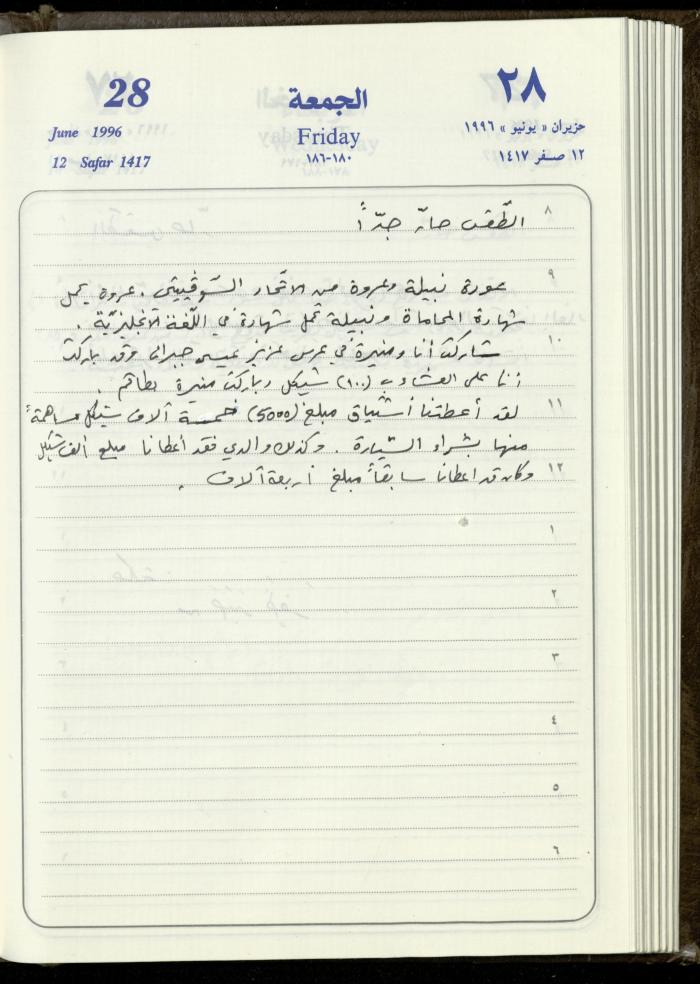 28
June 1996
12 Safar 1417
الجمعة
Friday
١٨٠-١٨٦
٢٨
حزيران « يونيو » ١٩٩٦
١٢ صفر ١٤١٧
٨ الطّقس حارّ جدّاً
٩
عودة نبيلة وعروة من الاتّحاد السّوڤييتي . عروة يحمل
شهادة المحاماة ونبيلة تحمل شهادة في اللّغة الانجليزيّة .
١٠ شاركت أنا ومنيرة في عرس عزيز عيسى جبران وقد باركت
أنا على العشاء ب (١٠٠) شيكل وباركت منيرة بطاقم .
١١ لقد أعطتنا أشتياق مبلغ (5000) خمسة آلاف شيكل مساهمةً
منها بشراء السّيارة . وكذلك والدي فقد اعطانا مبلغ ألف شيكل
١٢ وكان قد اعطانا سابقاً مبلغ أربعة آلاف .
١
٢
٣
٤
٥
٦